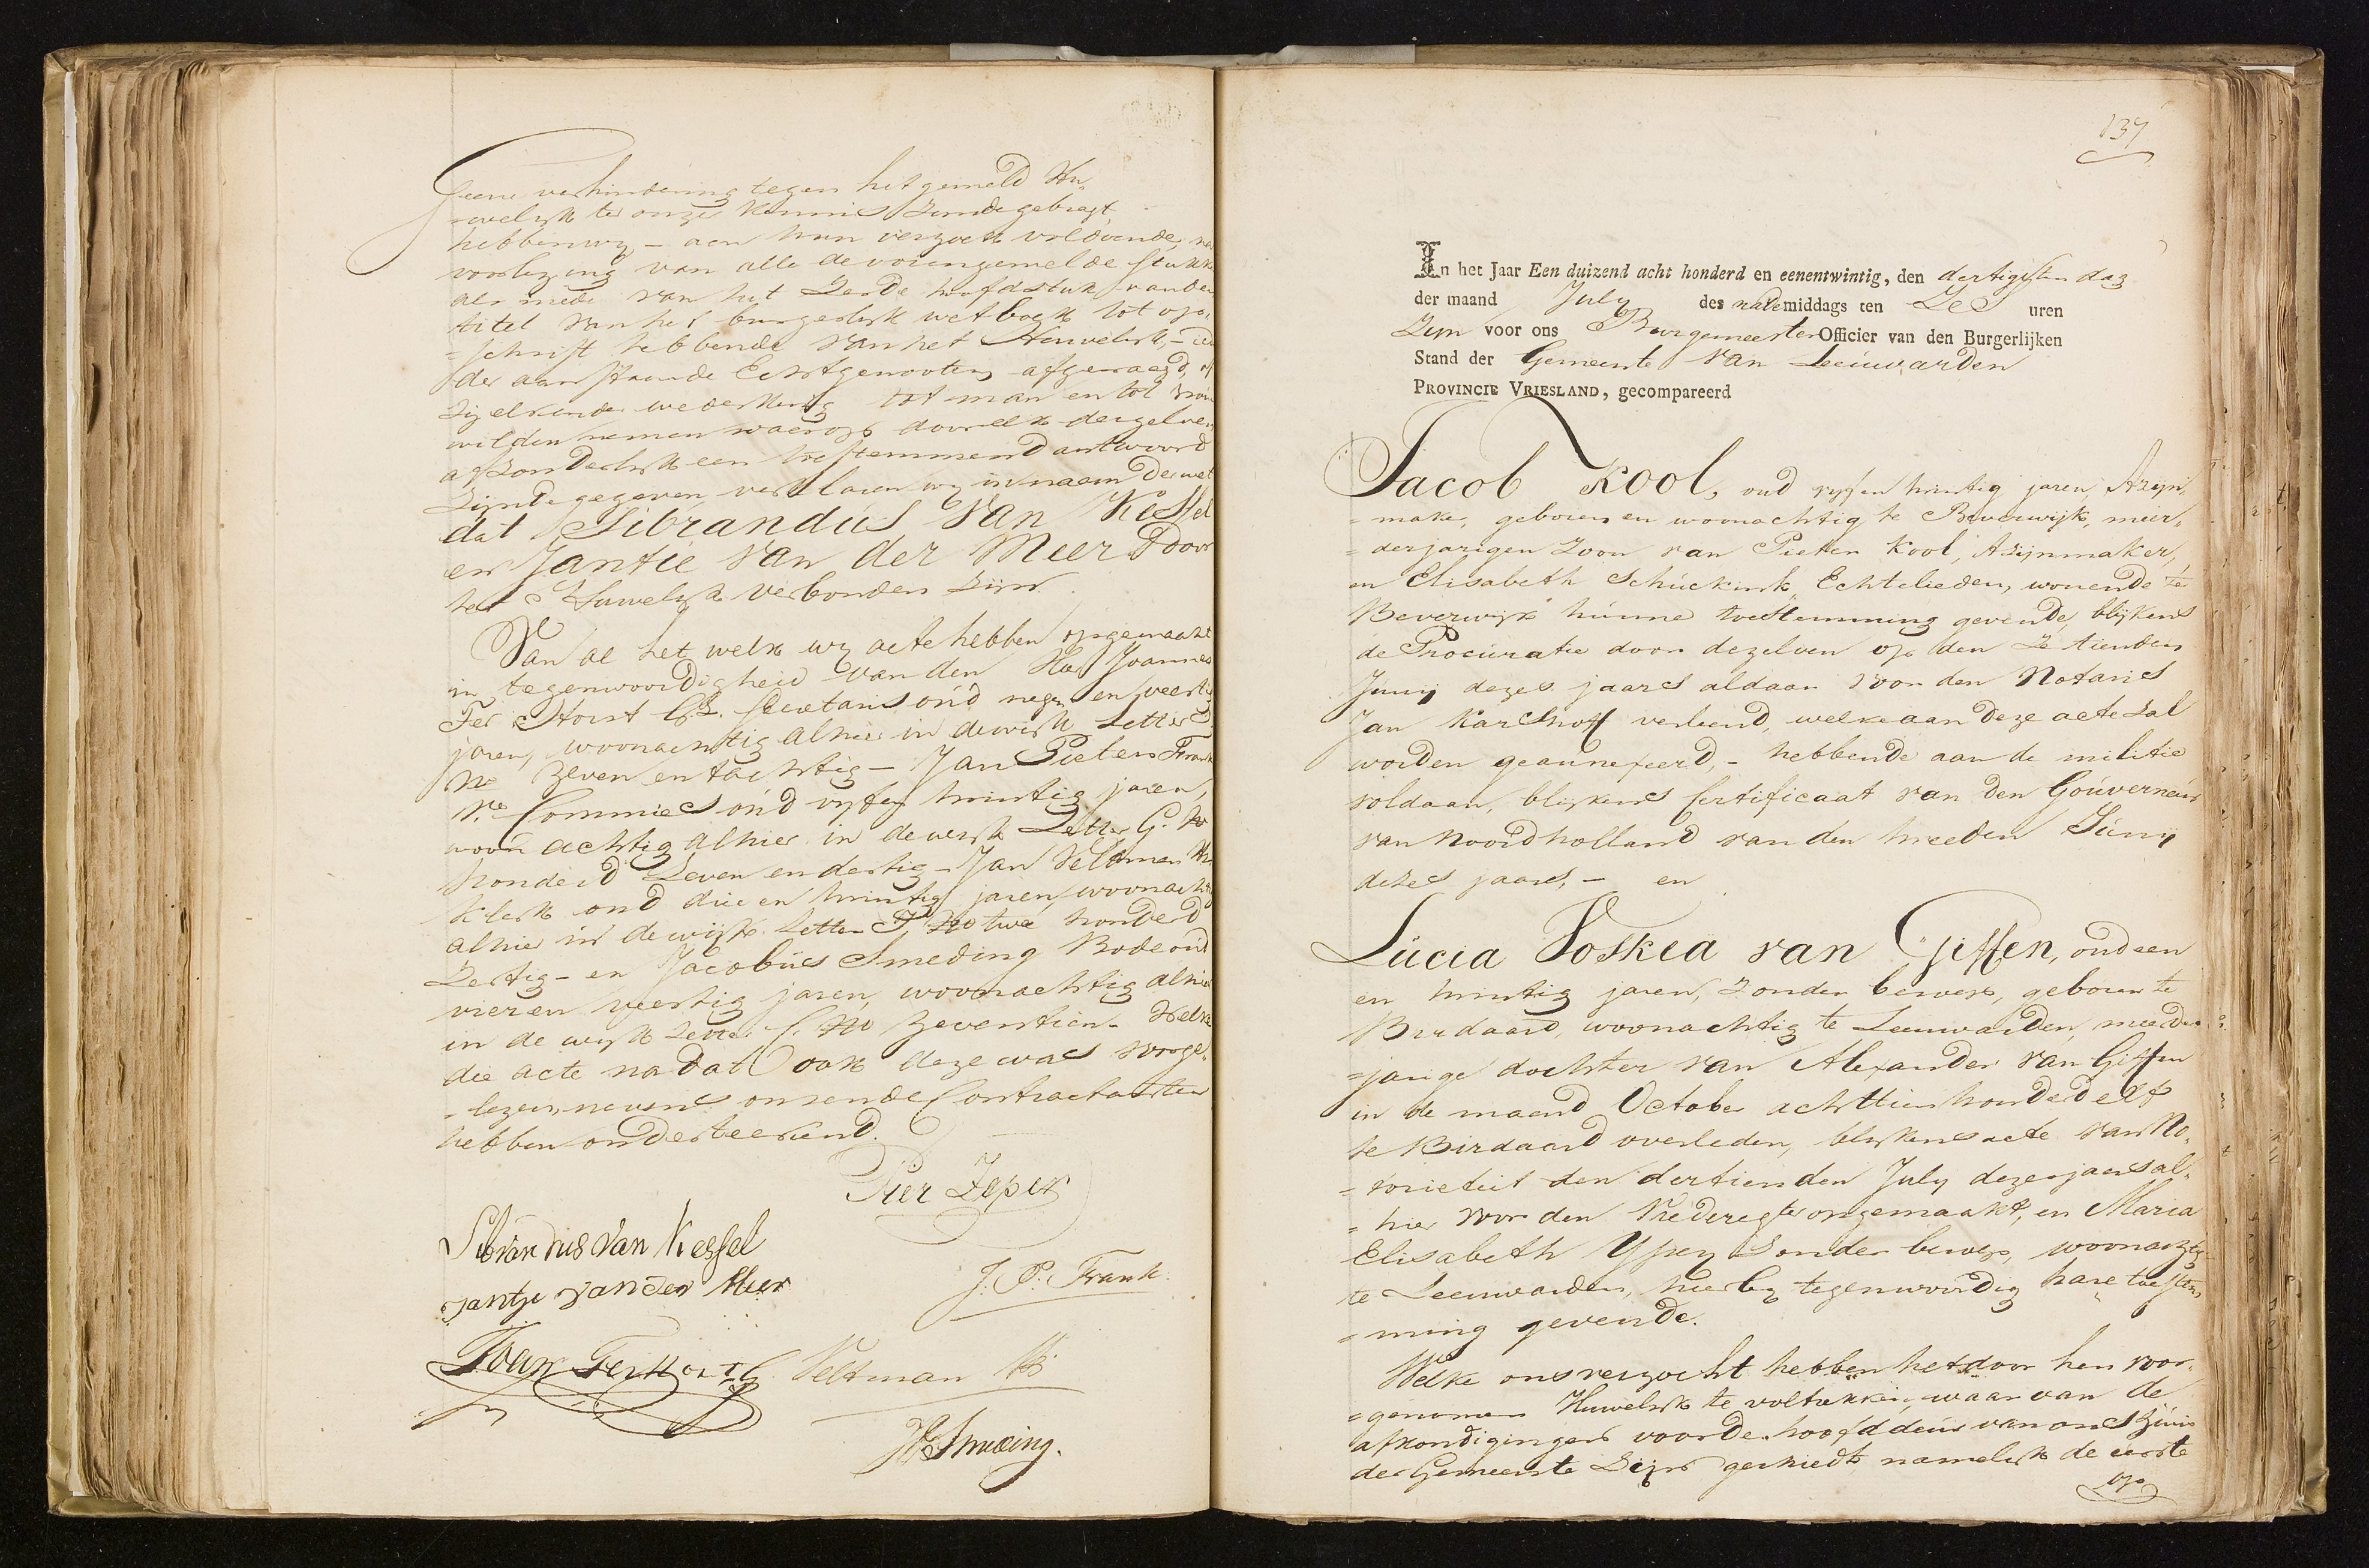 Geene verhindering tegen het gemeld Hu„
=welijk ter onzer kennis zynde gebragt,
hebben wy – aan hun verzoek voldoende, na
voorlezing van alle de vorengemelde stukke
als mede van het zesde hoofdstuk van den
titel van het burgerlyk wetboek tot op„
=schrift hebbende van het Huwelyk, –
der aanstaande Echtgenooten afgevraagd, of
Zij elkander wederkerig tot man en tot vrou
wilden nemen waarop door elk derzelver
afzonderlyk een toestemmend antwoord
Zynde gegeven, verklaren wy in naam der wet
dat Sibrandus van Kessel
en Jantie van der Meer door
het Huwelyk verbonden zijn.
Van al het welk wy acte hebben opgemaakt
in tegenwoordigheid van den Heer Joannes
Ter Horst Gz. secretaris oud negen en veertig
jaren, woonachtig alhier in de wyk Letter
No zeven en tachtig – Jan Pieters Frank
Commies oud vyf en twintig jaren,
woonachtig alhier in de wyk Letter G. No
honderd zeven en dertig – Jan Veltman
klerk oud drie en twintig jaren, woonacht
alhier in de wyk Letter No twee honderd
Zestig – en Jacobus Smeding Bode oud
vier en veertig jaren woonachtig alhier
in de wyk Letter No zeventien – Welke
die acte na dat ook deze was voorge„
=lezen, nevens ons en de Contractanten
hebben onderteekend.
Pier Zeper
Sibrandus van Kessel
jantje van der Meer
J. P. Frank.
Joan Ter Horst Gz
Veltman
Smeding.
137
In het Jaar Een duizend acht honderd en eenentwintig, den dertigsten dag
der maand July des nademiddags ten Zes uren
Zijn voor ons Burgemeester Officier van den Burgerlijken
Stand der Gemeente van Leeuwarden
PROVINCIE VRIESLAND, gecompareerd
Jacob Kool, oud vyf en twintig jaren, Azijn„
=maker, geboren en woonachtig te Beverwijk, meer„
=derjarigen Zoon van Pieter Kool, Azijnmaker,
en Elisabeth Schuckink, Echtelieden, wonende te
Beverwijk hunne toestemming gevende, blijkens
de Procuratie door dezelven op den Zestienden
Junij dezes jaars aldaar voor den Notaris
Jan Karshoff verleend, welke aan deze acte zal
worden geannexeerd, – hebbende aan de militie
voldaan, blijkens Certificaat van den Gouverneur
van Noordholland van den tweeden Juny
dezes jaars, – en
Lucia Foskea van Giffen, oud een
en twintig jaren, zonder beroep, geboren te
Birdaard, woonachtig te Leeuwarden, meerder
=jarige dochter van Alexander van Giffen
in de maand October achttien honderd elf
te Birdaard overleden, blykens acte van No„
=torieteit den dertienden July dezes jaars al„
=hier voor den Vrederegter opgemaakt, en Maria
Elisabeth Ypey zonder beroep, woonachtig
te Leeuwarden, hierby tegenwoordig hare toestem
=ming gevende.
Welke ons verzocht hebben het door hen voor„
=genomen Huwelyk te voltrekken, waar van de
afkondigingen voor de hoofddeur van ons Huis
der Gemeente Zijn geschiedt, namelyk de eerste
op